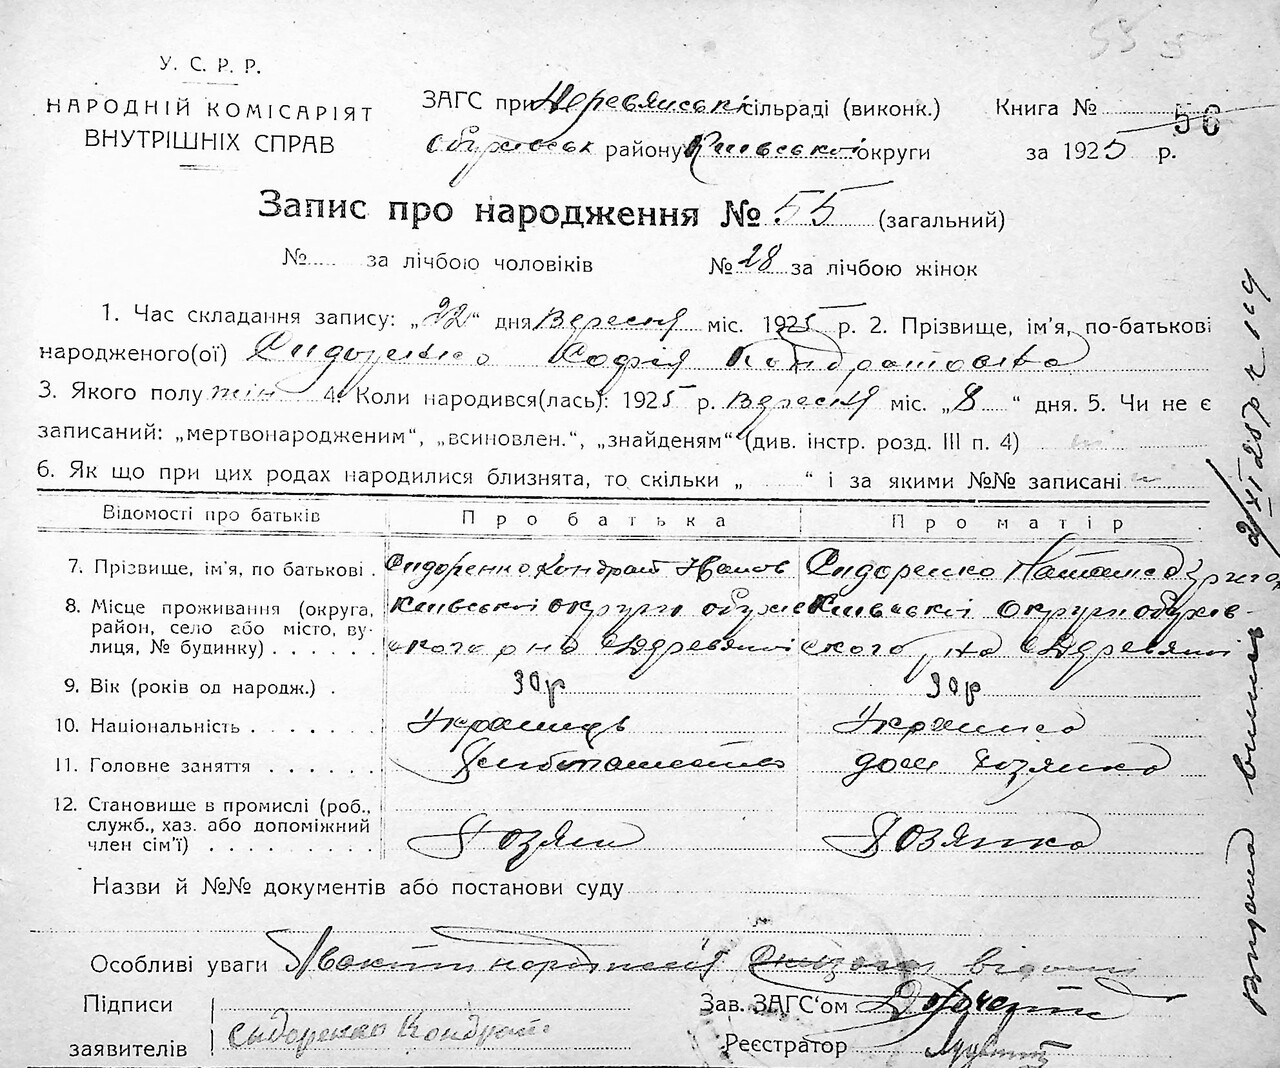 55
У. С. Р. Р.
НАРОДНІЙ КОМІСАРІЯТ
ВНУТРІШНІХ СПРАВ
ЗАГС при Деревянській сільраді (виконк.)
району Київської округи
Книга № 56
за 1925 р.
Запис про народження № 55 (загальний)
№ за лічбою чоловіків № 28 за лічбою жінок
1. Час складання запису: „22“ дня Вересня міс. 1925 р. 2. Прізвище, ім'я, по-батькові
народженого(ої) Сидоренко Софія Кондратовна
3. Якого полу жін 4. Коли народився(лась): 1925 р. Вересня міс. „8“ дня. 5. Чи не є
записаний: „мертвонародженим“, „всиновлен.“, „знайденям“ (див. інстр. розд. III п. 4) ні
6. Як що при цих родах народилися близнята, то скільки „ “ і за якими №№ записані
Відомості про батьків Про батька Про матір
7. Прізвище, ім'я, по батькові . Сидоренко Кондрат Иванов Сидоренко
8. Місце проживання (округа, Київської округи обухів Київської округи обухів-
район, село або місто, ву- ского р на Деревяної ского р на Деревяної
лиця, № будинку) . . . . .
9. Вік (років од народж.) . 30 р 30 р
10. Національність . . . . . . . Українець Українка
11. Головне заняття . . . . . . дом Хозяйка
12. Становище в промислі (роб.,
служб., хаз. або допоміжний Хозяїн Хозяйка
член сім'ї) . . . . . . . . .
Назви й №№ документів або постанови суду
Особливі уваги
Підписи
заявителів Сидоренко Кондрат
Зав. ЗАГС‘ом
Реєстратор
Видана випись